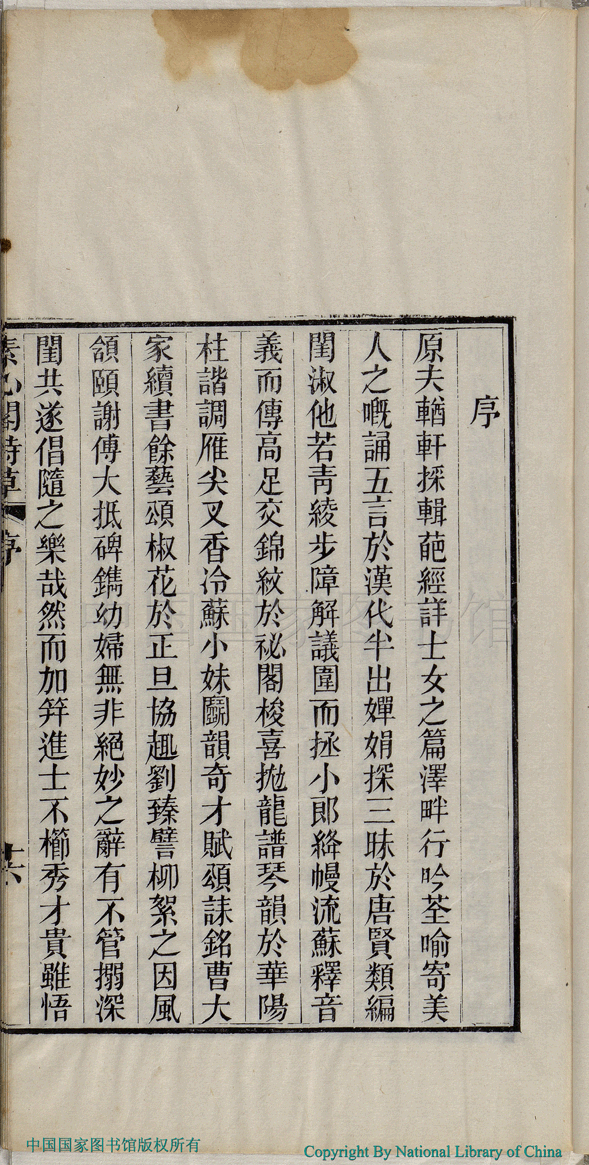 序
原夫輶軒採輯葩經詳士女之篇澤畔行吟荃喻寄美
人之嘅誦五言於漢代半出嬋娟探三昧於唐賢類編
閨淑他若青綾步障解議圍而拯小郎絳幔流蘇釋音
義而傳高足交錦紋於祕閣梭喜拋龍譜琴韻於華陽
柱諧調雁尖叉香冷蘇小妹鬬韻奇才賦頌誄銘曹大
家續書餘藝頌椒花於正旦協趣劉臻譬柳絮之因風
頷頤謝傅大抵碑鐫幼婦無非絕妙之辭有不管搦深
閨共遂倡隨之樂哉然而加笄進士不櫛秀才貴雖悟
素心閣詩草 序
中国国家图书馆
中国国家图书馆版权所有
Copyright By National Library of China